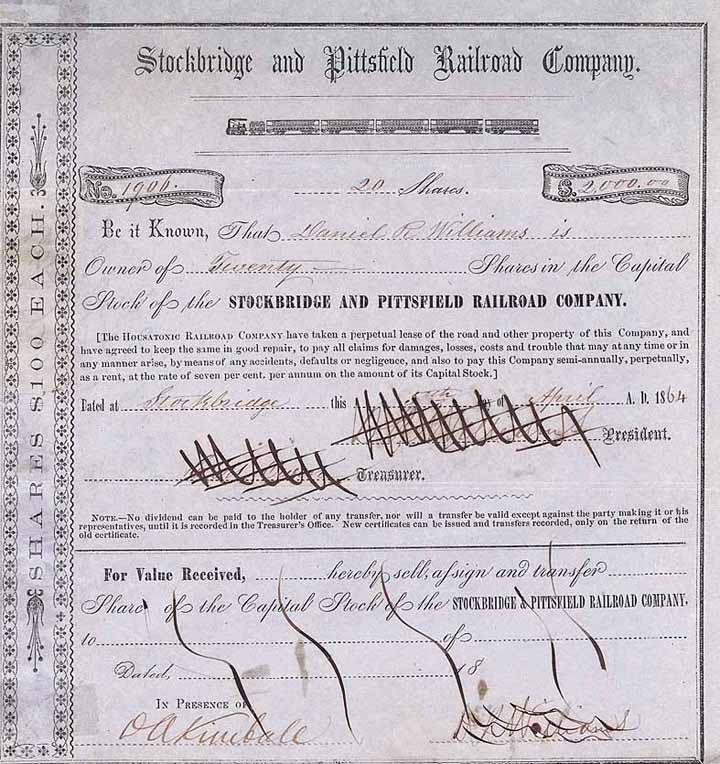 Stockbridge and Pittsfield Railroad Company.
No. 1906.
20 Shares.
$. 2,000.00
Be it Known, That Daniel R. Williams is
Owner of Twenty Shares in the Capital
Stock of the STOCKBRIDGE AND PITTSFIELD RAILROAD COMPANY.
[The Housatonic Railroad Company have taken a perpetual lease of the road and other property of this Company, and
have agreed to keep the same in good repair, to pay all claims for damages, losses, costs and trouble that may at any time or in
any manner arise, by means of any accidents, defaults or negligence, and also to pay this Company semi-annually, perpetually,
as a rent, at the rate of seven per cent. per annum on the amount of its Capital Stock.]
Dated at Stockbridge this day of April A. D. 1864
President.
Treasurer.
Note.—No dividend can be paid to the holder of any transfer, nor will a transfer be valid except against the party making it or his
representatives, until it is recorded in the Treasurer's Office. New certificates can be issued and transfers recorded, only on the return of the
old certificate.
For Value Received, hereby sell, assign and transfer
Share of the Capital Stock of the STOCKBRIDGE & PITTSFIELD RAILROAD COMPANY,
to of
Dated, 18
In Presence of
O A Kimball
D R Williams
SHARES $100 EACH.